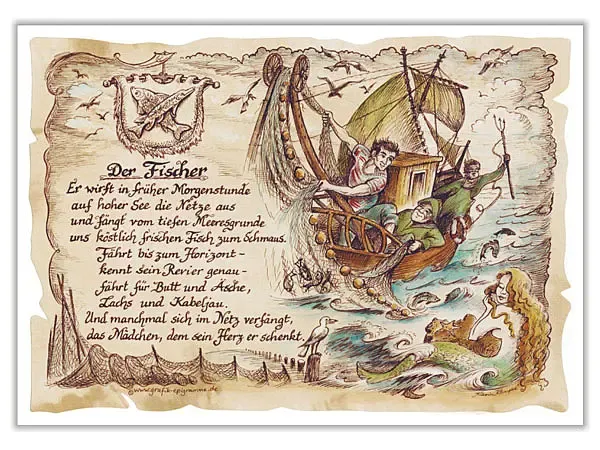 Der Fischer
Er wirft in früher Morgenstunde
auf hoher See die Netze aus
und fängt vom tiefen Meeresgrunde
uns köstlich frischen Fisch zum Schmaus.
Fährt bis zum Horizont-
kennt sein Revier genau-
fährt für Butt und Äsche,
Lachs und Kabeljau.
Und manchmal sich im Netz verfängt,
das Mädchen, dem sein Herz er schenkt.
©www.grafik-epigramme.de